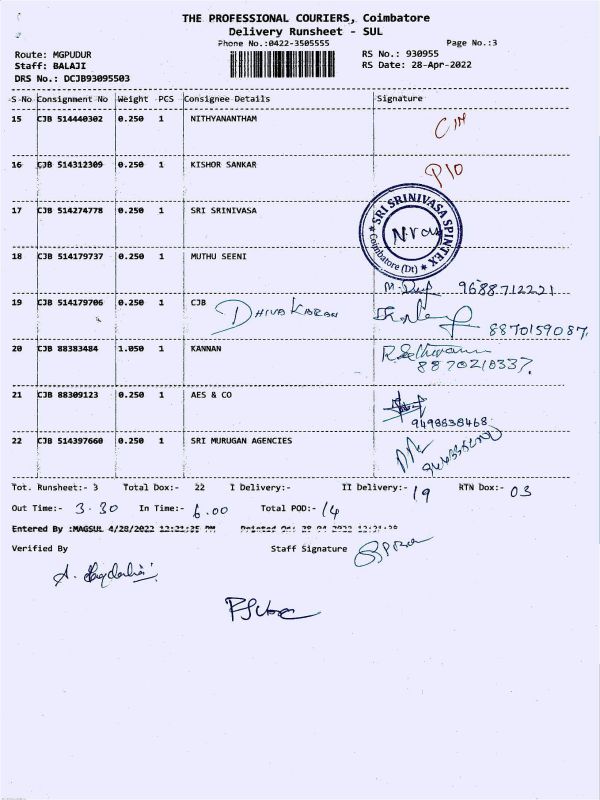 THE PROFESSIONAL COURIERS, Coimbatore
Delivery Runsheet - SUL
Phone No.:0422-3505555
Page No.:3
Route: MGPUDUR
RS No.: 930955
Staff: BALAJI
RS Date: 28-Apr-2022
DRS No.: DCJB93095503
S No Consignment No Weight PCS Consignee Details Signature
15 CJB 514440302 0.250 1 NITHYANANTHAM
16 CJB 514312309 0.250 1 KISHOR SANKAR P10
17 CJB 514274778 0.250 1 SRI SRINIVASA
SRI SRINIVASA SPINTEX
Coimbatore (Dt)
18 CJB 514179737 0.250 1 MUTHU SEENI
9688712221
19 CJB 514179706 0.250 1 CJB DHIVAKARAN
8870159087
20 CJB 88383484 1.050 1 KANNAN
8870210337
21 CJB 88309123 0.250 1 AES & CO
9498838468
22 CJB 514397660 0.250 1 SRI MURUGAN AGENCIES
Tot. Runsheet:- 3 Total Dox:- 22 I Delivery:- II Delivery:- 19 RTN Dox:- 03
Out Time:- 3.30 In Time:- 6.00 Total POD:- 14
Entered By :MAGSUL 4/28/2022 12:21:25 PM Printed On: 28 04 2022
Verified By Staff Signature